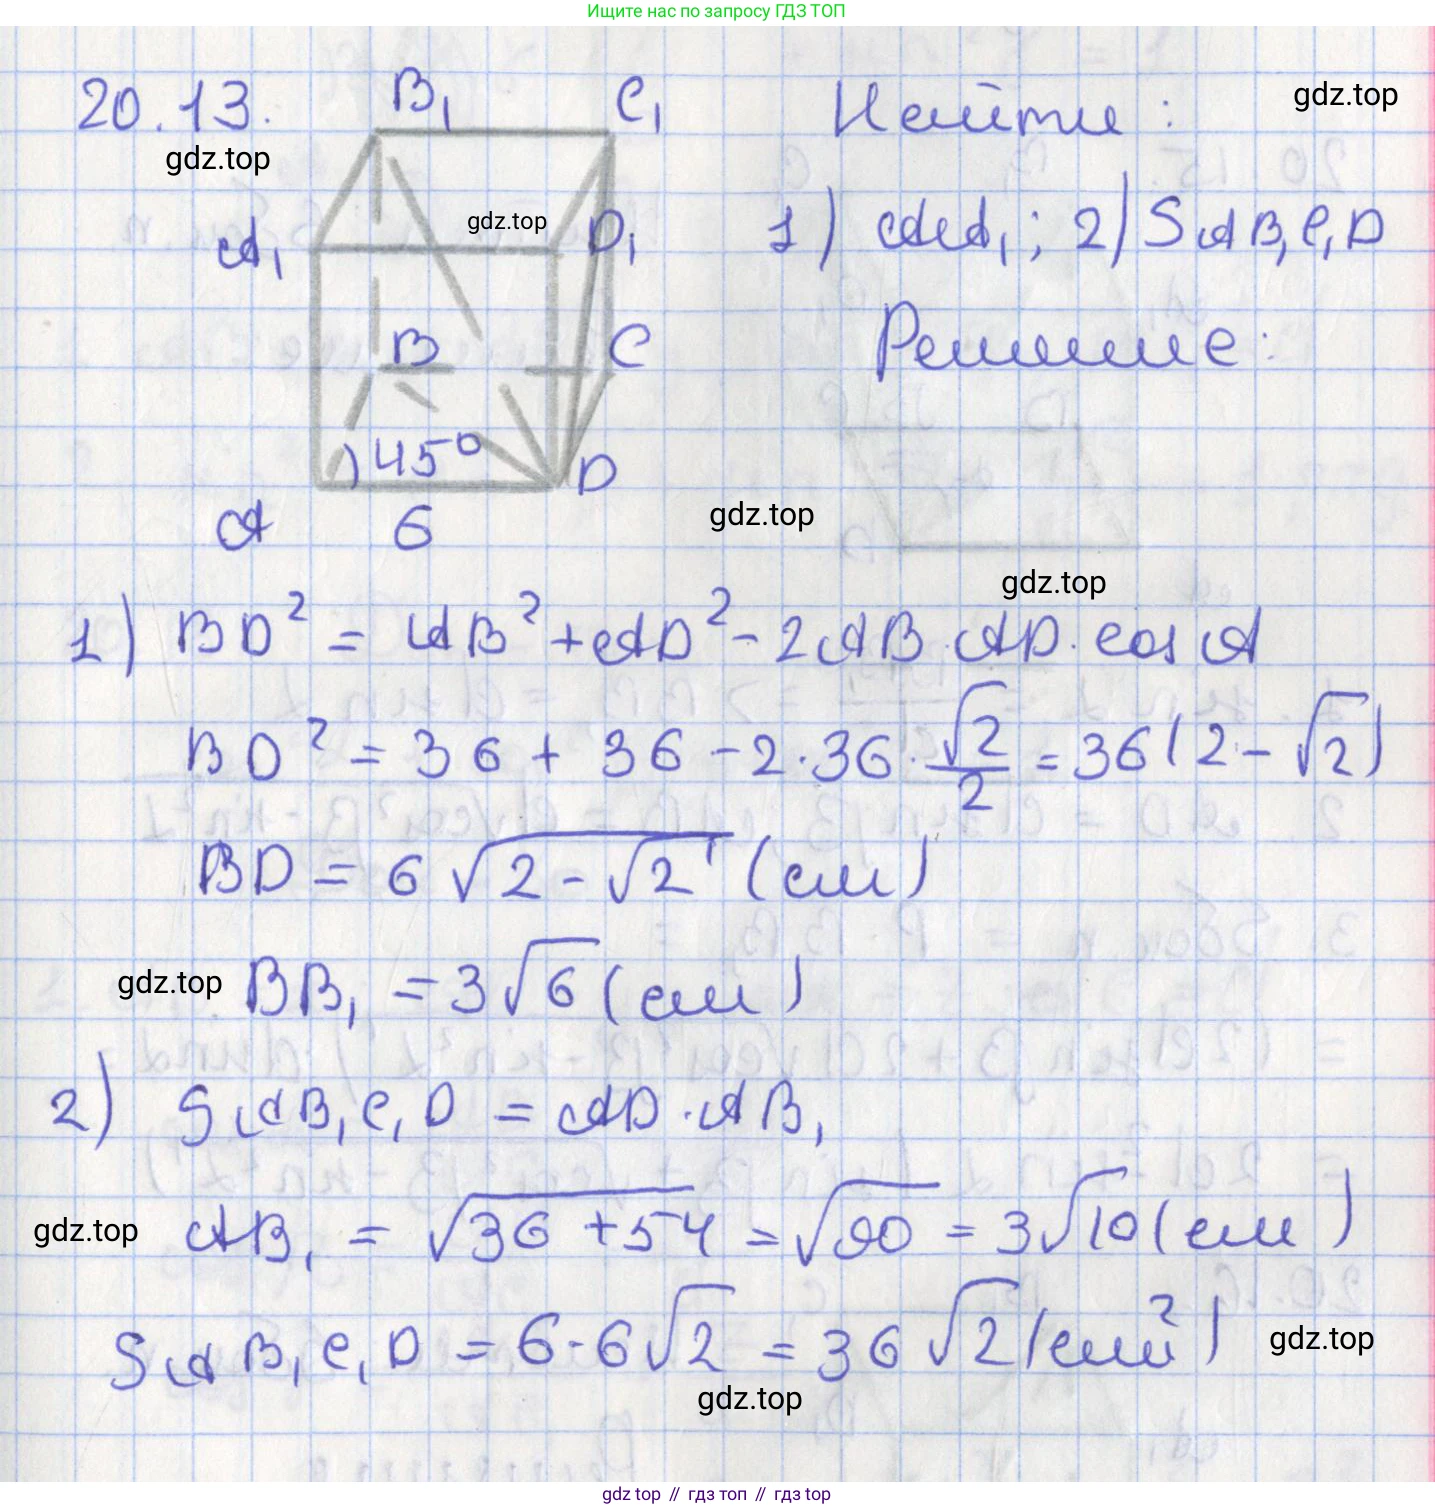 Ищите нас по запросу ГДЗ ТОП
20.13.
B₁ C₁
Найти :
gdz.top
gdz.top
gdz.top
A₁ D₁
1) AA₁ ; 2) SAB₁C₁D
B C
Решение :
45°
D
A 6
gdz.top
gdz.top
1) BD² = AB² + AD² - 2AB · AD · cos A
BD² = 36 + 36 - 2 · 36 · √2/2 = 36(2 - √2)
BD = 6√(2 - √2) (см)
gdz.top BB₁ = 3√6 (см)
2) SAB₁C₁D = AD · AB₁
gdz.top AB₁ = √(36 + 54) = √90 = 3√10 (см)
SAB₁C₁D = 6 · 6√2 = 36√2 (см²)
gdz.top
gdz.top
gdz top // гдз топ // гдз top